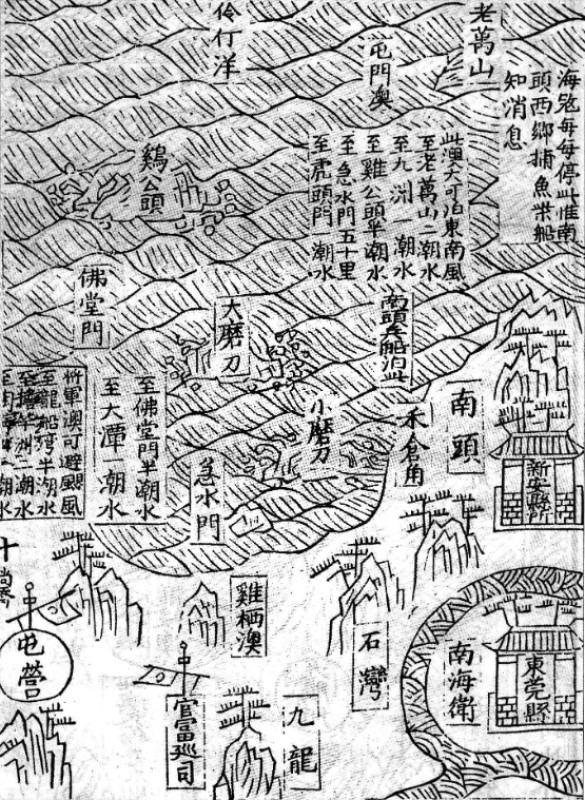 老萬山
海宼每每停此惟南
頭西鄉捕魚柴船
知消息
屯門澳
伶仃洋
此潭大可泊東南風
至老萬山二潮水
至九洲一潮水
至雞公頭半潮水
至急水門五十里
至虎頭門一潮水
鷄公頭
佛堂門
大磨刀
南頭兵船泊此
小磨刀
禾倉角
南頭
新安縣
至佛堂門半潮水
至大潭一潮水
將軍澳可避颶風
至龍船灣半潮水
急水門
雞栖澳
石灣
南海衛
東莞縣
屯營
官富巡司
九龍